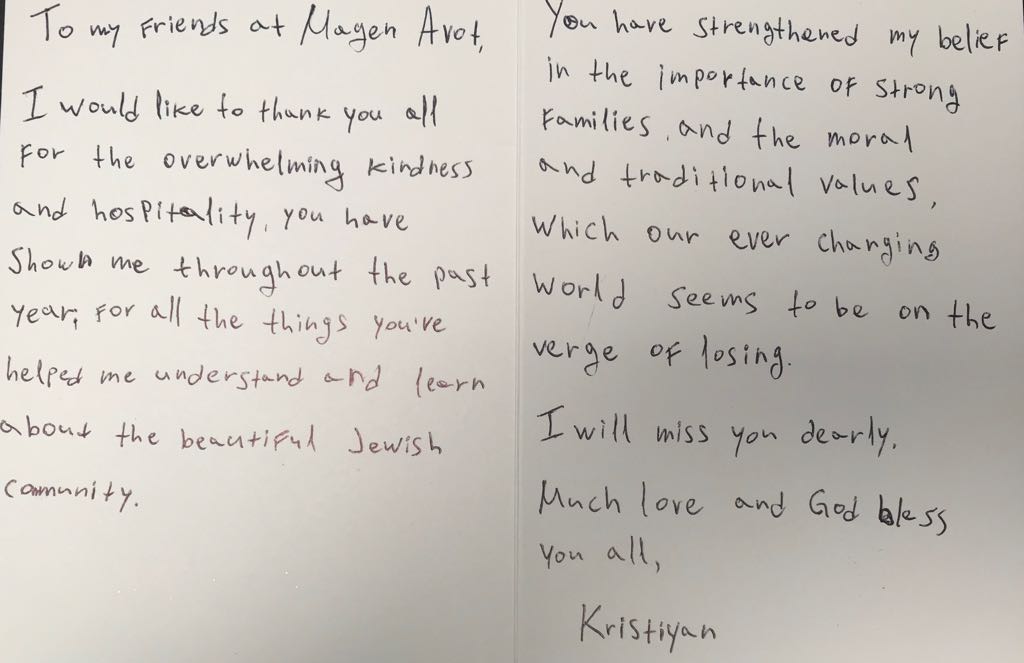 To my Friends at Magen Avot,
I would like to thank you all
For the overwhelming kindness
and hospitality, you have
Shown me throughout the past
year; For all the things you've
helped me understand and learn
about the beautiful Jewish
community.
You have strengthened my belief
in the importance of strong
Families, and the moral
and traditional values,
which our ever changing
world seems to be on the
verge of losing.
I will miss you dearly.
Much love and God bless
you all,
Kristiyan